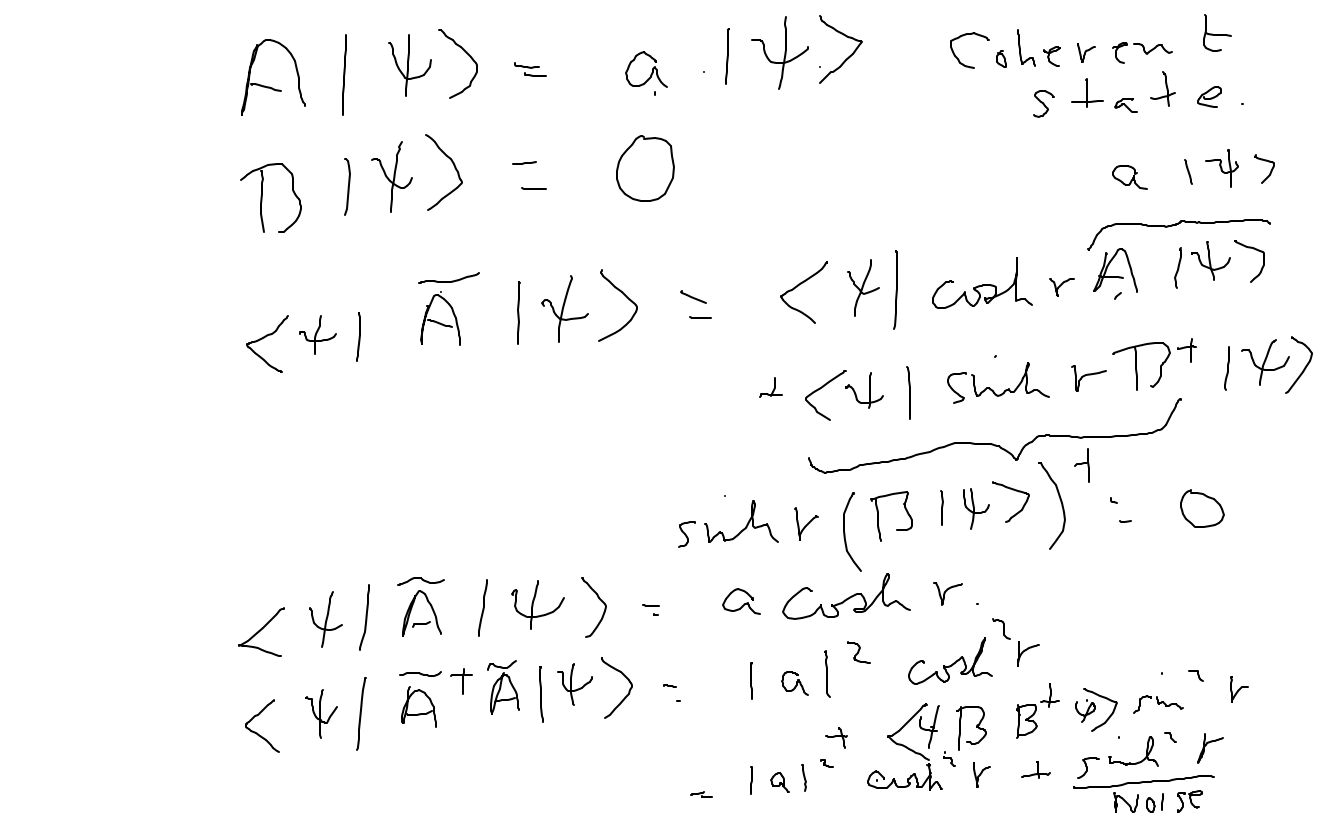 A |ψ⟩ = a |ψ⟩ Coherent state.
B |ψ⟩ = 0
a |ψ⟩
⟨ψ| Ã |ψ⟩ = ⟨ψ| cosh r A |ψ⟩
+ ⟨ψ| sinh r B⁺ |ψ⟩
sinh r (B |ψ⟩)⁺ = 0
⟨ψ| Ã |ψ⟩ = a cosh r.
⟨ψ| Ã⁺ Ã |ψ⟩ = |a|² cosh² r
+ ⟨ψ B B⁺ ψ⟩ sin² r
= |a|² cosh² r + sinh² r
NOISE